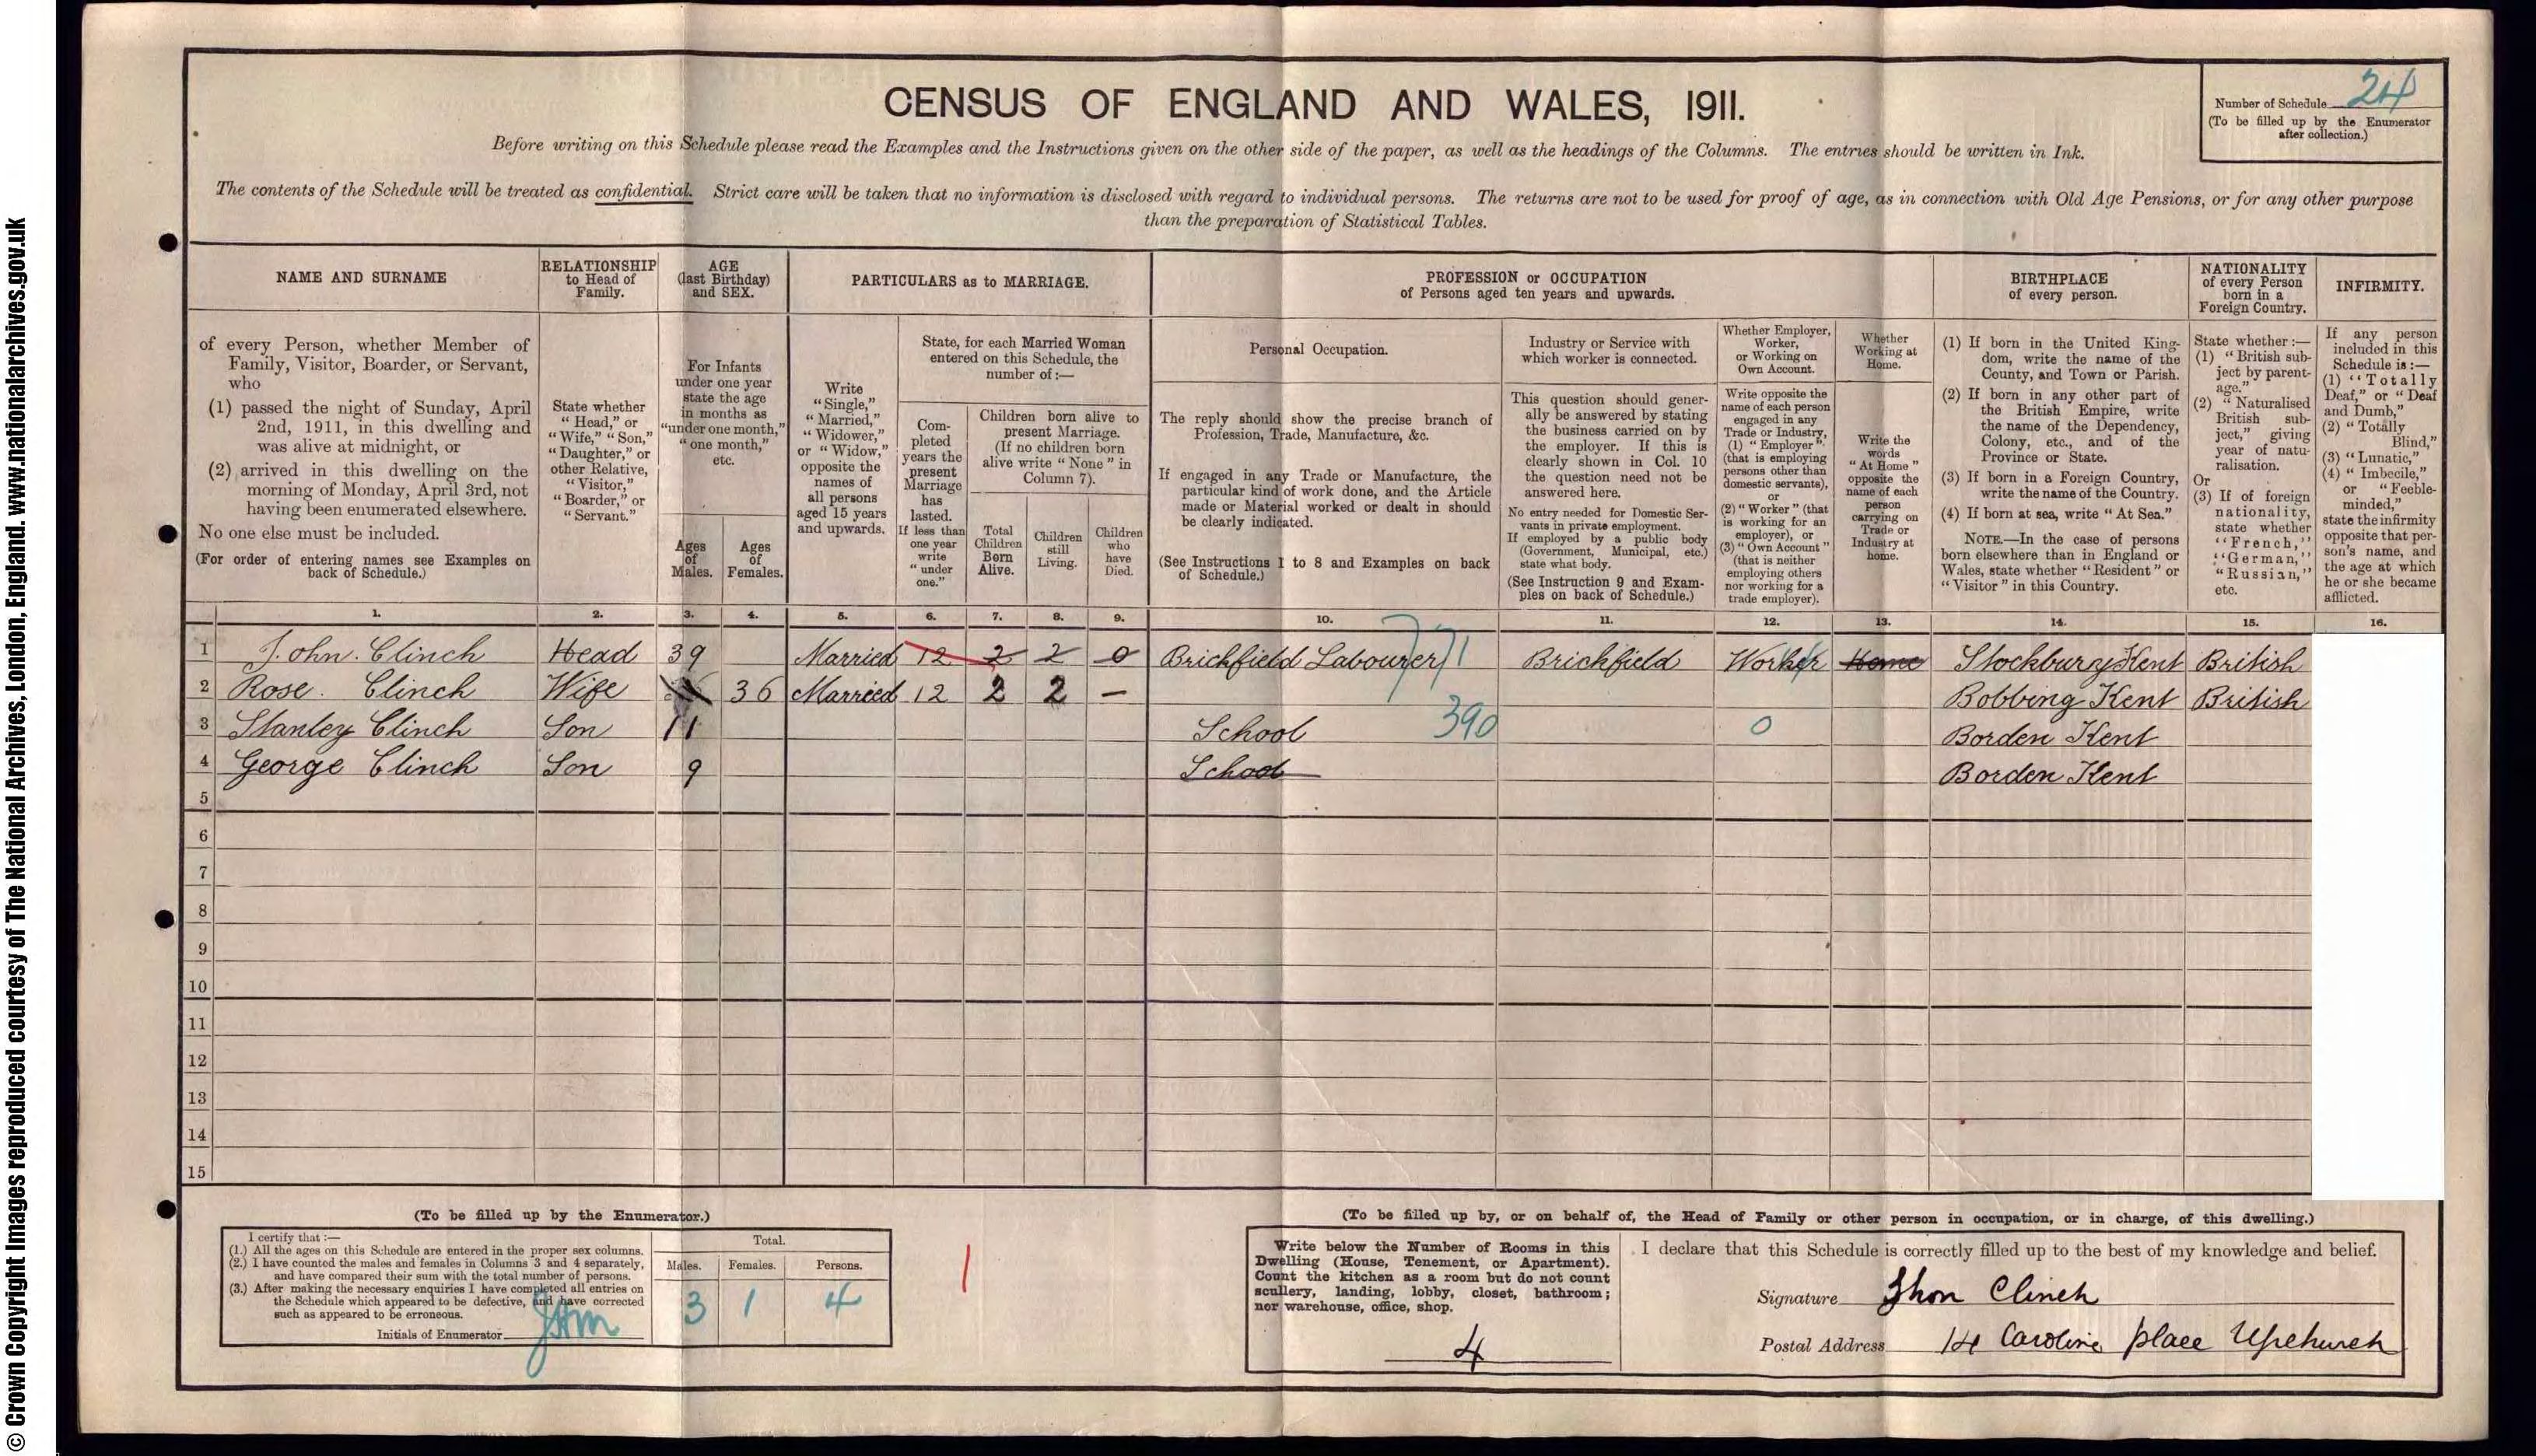 © Crown Copyright Images reproduced courtesy of The National Archives, London, England. www.nationalarchives.gov.uk
CENSUS OF ENGLAND AND WALES, 1911.
Number of Schedule 24
(To be filled up by the Enumerator
after collection.)
Before writing on this Schedule please read the Examples and the Instructions given on the other side of the paper, as well as the headings of the Columns. The entries should be written in Ink.
The contents of the Schedule will be treated as confidential. Strict care will be taken that no information is disclosed with regard to individual persons. The returns are not to be used for proof of age, as in connection with Old Age Pensions, or for any other purpose
than the preparation of Statistical Tables.
NAME AND SURNAME
of every Person, whether Member of
Family, Visitor, Boarder, or Servant,
who
(1) passed the night of Sunday, April
2nd, 1911, in this dwelling and
was alive at midnight, or
(2) arrived in this dwelling on the
morning of Monday, April 3rd, not
having been enumerated elsewhere.
No one else must be included.
(For order of entering names see Examples on
back of Schedule.)
RELATIONSHIP
to Head of
Family.
State whether
"Head," or
"Wife," "Son,"
"Daughter," or
other Relative,
"Visitor,"
"Boarder," or
"Servant."
AGE
(last Birthday)
and SEX.
For Infants
under one year
state the age
in months as
"under one month,"
"one month,"
etc.
Ages
of
Males.
Ages
of
Females.
PARTICULARS as to MARRIAGE.
Write
"Single,"
"Married,"
"Widower,"
or "Widow,"
opposite the
names of
all persons
aged 15 years
and upwards.
State, for each Married Woman
entered on this Schedule, the
number of :—
Com-
pleted
years the
present
Marriage
has
lasted.
If less than
one year
write
"under
one."
Children born alive to
present Marriage.
(If no children born
alive write "None" in
Column 7).
Total
Children
Born
Alive.
Children
still
Living.
Children
who
have
Died.
PROFESSION or OCCUPATION
of Persons aged ten years and upwards.
Personal Occupation.
The reply should show the precise branch of
Profession, Trade, Manufacture, &c.
If engaged in any Trade or Manufacture, the
particular kind of work done, and the Article
made or Material worked or dealt in should
be clearly indicated.
(See Instructions 1 to 8 and Examples on back
of Schedule.)
Industry or Service with
which worker is connected.
This question should gener-
ally be answered by stating
the business carried on by
the employer. If this is
clearly shown in Col. 10
the question need not be
answered here.
No entry needed for Domestic Ser-
vants in private employment.
If employed by a public body
(Government, Municipal, etc.)
state what body.
(See Instruction 9 and Exam-
ples on back of Schedule.)
Whether Employer,
Worker,
or Working on
Own Account.
Write opposite the
name of each person
engaged in any
Trade or Industry,
(1) "Employer"
(that is employing
persons other than
domestic servants),
or
(2) "Worker" (that
is working for an
employer), or
(3) "Own Account"
(that is neither
employing others
nor working for a
trade employer).
Whether
Working at
Home.
Write the
words
"At Home"
opposite the
name of each
person
carrying on
Trade or
Industry at
home.
BIRTHPLACE
of every person.
(1) If born in the United King-
dom, write the name of the
County, and Town or Parish.
(2) If born in any other part of
the British Empire, write
the name of the Dependency,
Colony, etc., and of the
Province or State.
(3) If born in a Foreign Country,
write the name of the Country.
(4) If born at sea, write "At Sea."
NOTE.—In the case of persons
born elsewhere than in England or
Wales, state whether "Resident" or
"Visitor" in this Country.
NATIONALITY
of every Person
born in a
Foreign Country.
State whether :—
(1) "British sub-
ject by parent-
age,"
(2) "Naturalised
British sub-
ject," giving
year of natu-
ralisation.
Or
(3) If of foreign
nationality,
state whether
"French,"
"German,"
"Russian,"
etc.
INFIRMITY.
If any person
included in this
Schedule is :—
(1) "Totally
Deaf," or "Deaf
and Dumb,"
(2) "Totally
Blind,"
(3) "Lunatic,"
(4) "Imbecile,"
or "Feeble-
minded,"
state the infirmity
opposite that per-
son's name, and
the age at which
he or she became
afflicted.
1. 2. 3. 4. 5. 6. 7. 8. 9. 10. 11. 12. 13. 14. 15. 16.
1 John Clinch Head 39 Married 12 2 2 0 Brickfield Labourer 771 Brickfield Worker Home Stockbury Kent British
2 Rose Clinch Wife 36 Married 12 2 2 — Bobbing Kent British
3 Stanley Clinch Son 11 School 390 0 Borden Kent
4 George Clinch Son 9 School Borden Kent
5
6
7
8
9
10
11
12
13
14
15
(To be filled up by the Enumerator.)
I certify that :—
(1.) All the ages on this Schedule are entered in the proper sex columns.
(2.) I have counted the males and females in Columns 3 and 4 separately,
and have compared their sum with the total number of persons.
(3.) After making the necessary enquiries I have completed all entries on
the Schedule which appeared to be defective, and have corrected
such as appeared to be erroneous.
Initials of Enumerator
Total.
Males. Females. Persons.
3 1 4
1
(To be filled up by, or on behalf of, the Head of Family or other person in occupation, or in charge, of this dwelling.)
Write below the Number of Rooms in this
Dwelling (House, Tenement, or Apartment).
Count the kitchen as a room but do not count
scullery, landing, lobby, closet, bathroom;
nor warehouse, office, shop.
4
I declare that this Schedule is correctly filled up to the best of my knowledge and belief.
Signature Jhon Clinch
Postal Address 14 Caroline place Upchurch